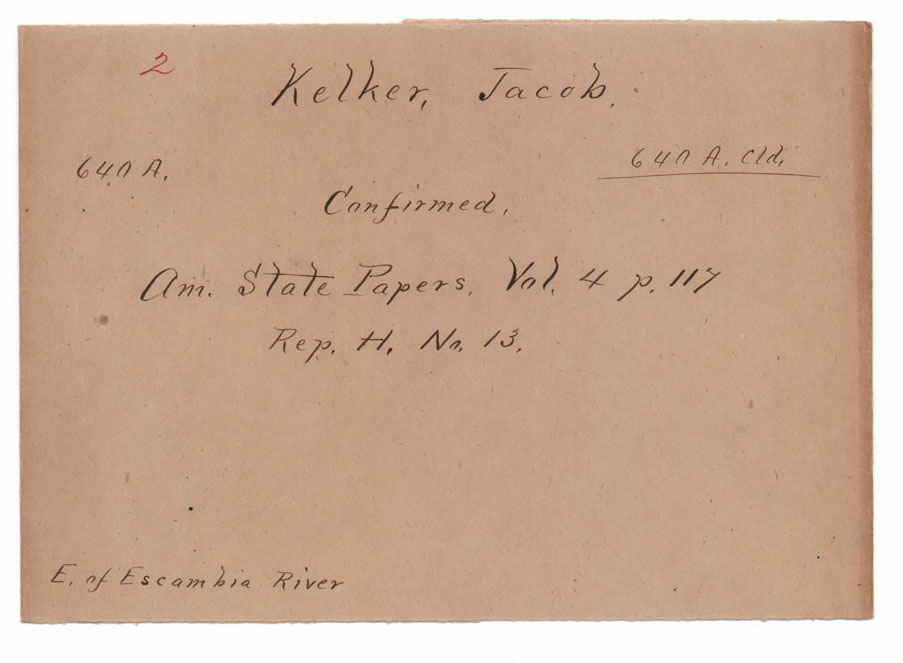 2
Kelker, Jacob.
640 A.
640 A. Cld.
Confirmed.
Am. State Papers, Vol. 4 p. 117
Rep. H. No. 13.
E. of Escambia River